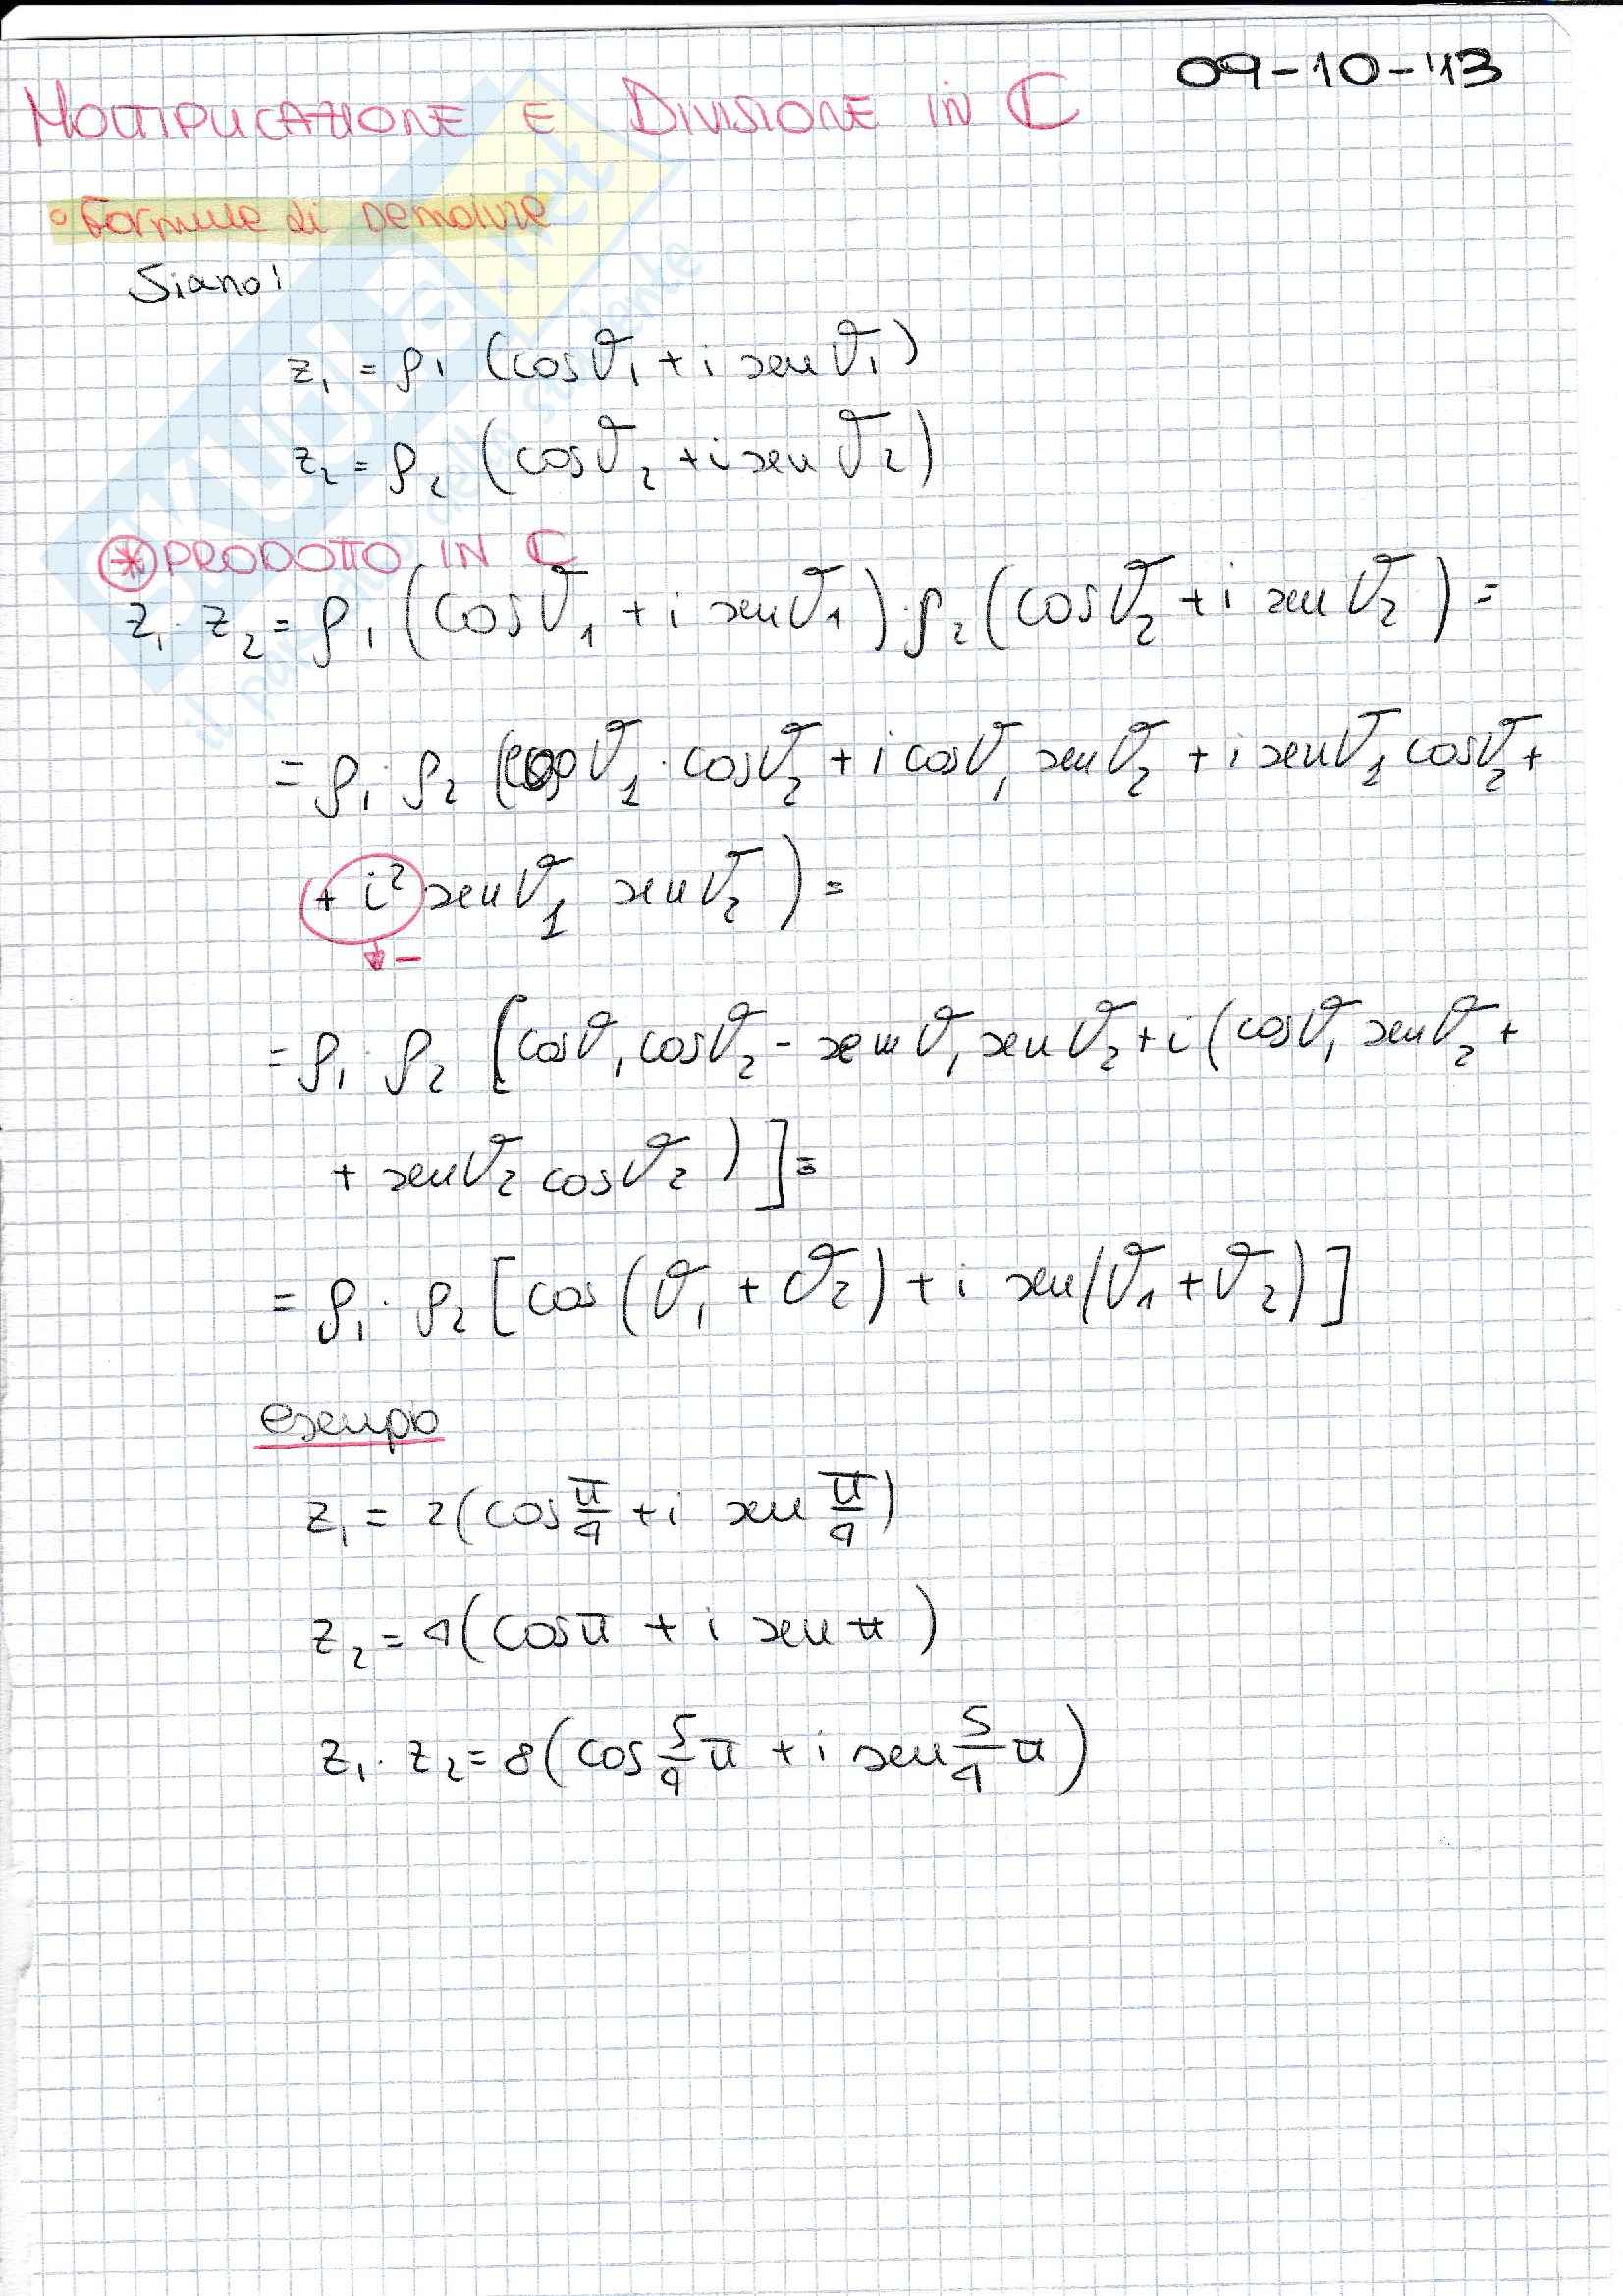 09-10-'13
MOLTIPLICAZIONE E DIVISIONE IN ℂ
• Formule di Demoivre
Siano:
z₁ = ρ₁ (cosϑ₁ + i senϑ₁)
z₂ = ρ₂ (cosϑ₂ + i senϑ₂)
* PRODOTTO IN ℂ
z₁ · z₂ = ρ₁ (cosϑ₁ + i senϑ₁) · ρ₂ (cosϑ₂ + i senϑ₂) =
= ρ₁ · ρ₂ (cosϑ₁ · cosϑ₂ + i cosϑ₁ senϑ₂ + i senϑ₁ cosϑ₂ +
+ i² senϑ₁ senϑ₂) =
↓ −
= ρ₁ · ρ₂ [cosϑ₁ cosϑ₂ - senϑ₁ senϑ₂ + i (cosϑ₁ senϑ₂ +
+ senϑ₂ cosϑ₂)] =
= ρ₁ · ρ₂ [cos (ϑ₁ + ϑ₂) + i sen (ϑ₁ + ϑ₂)]
esempio
z₁ = 2 (cos π/4 + i sen π/4)
z₂ = 4 (cosπ + i senπ)
z₁ · z₂ = 8 (cos 5/4 π + i sen 5/4 π)